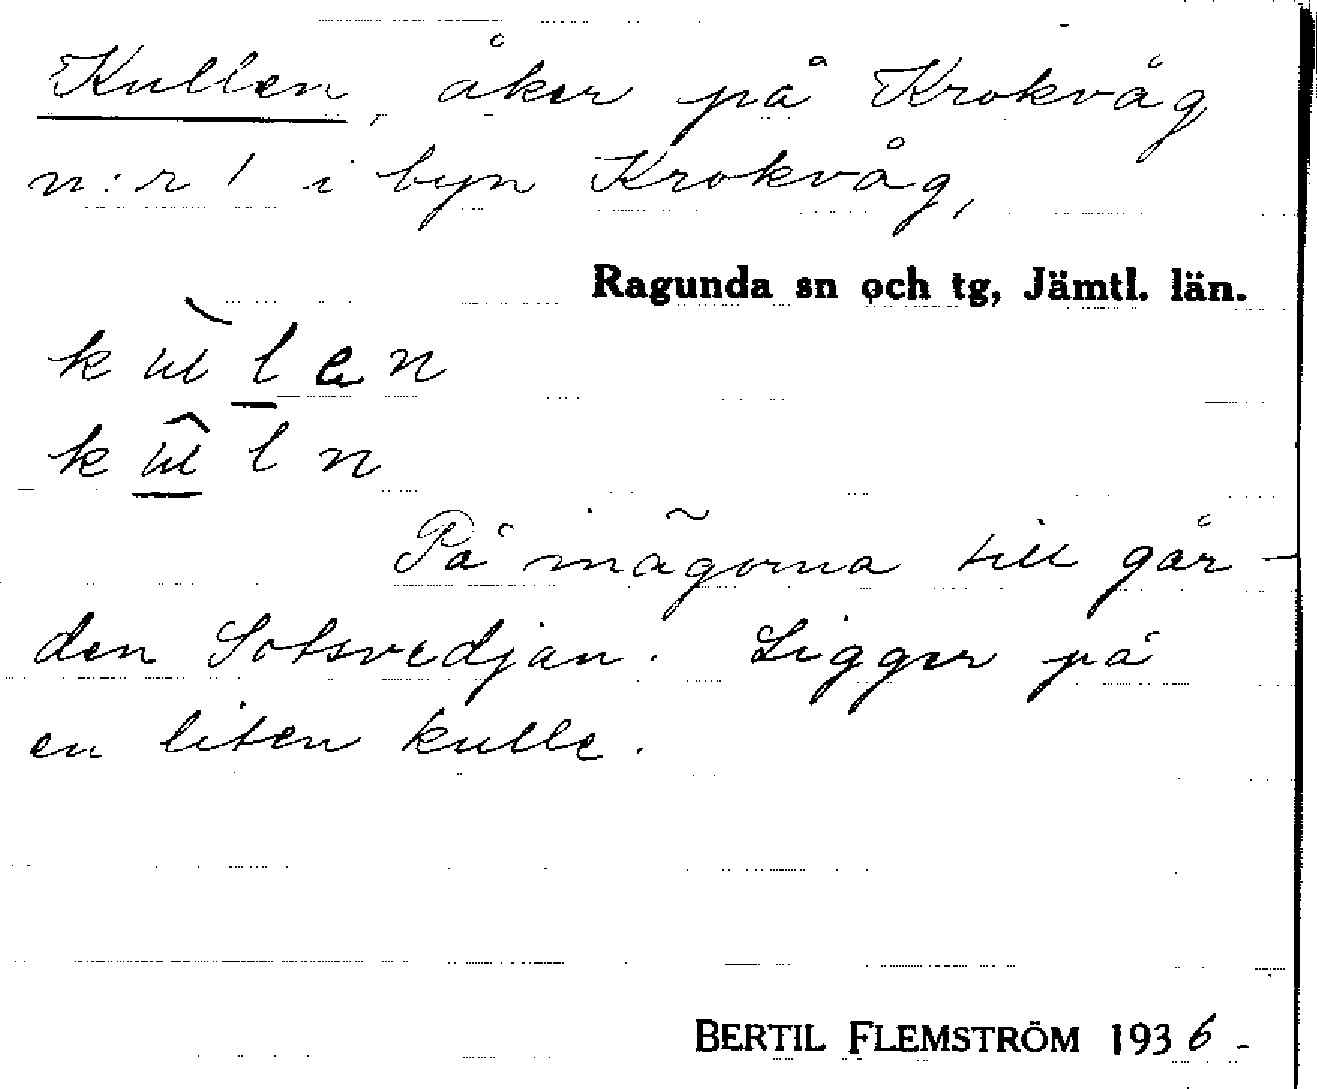 Kullen, åker på Krokvåg
n:r 1 i byn Krokvåg,
Ragunda sn och tg, Jämtl. län.
På inägorna till går-
den Sotsvedjan. Ligger på
en liten kulle.
BERTIL FLEMSTRÖM 1936